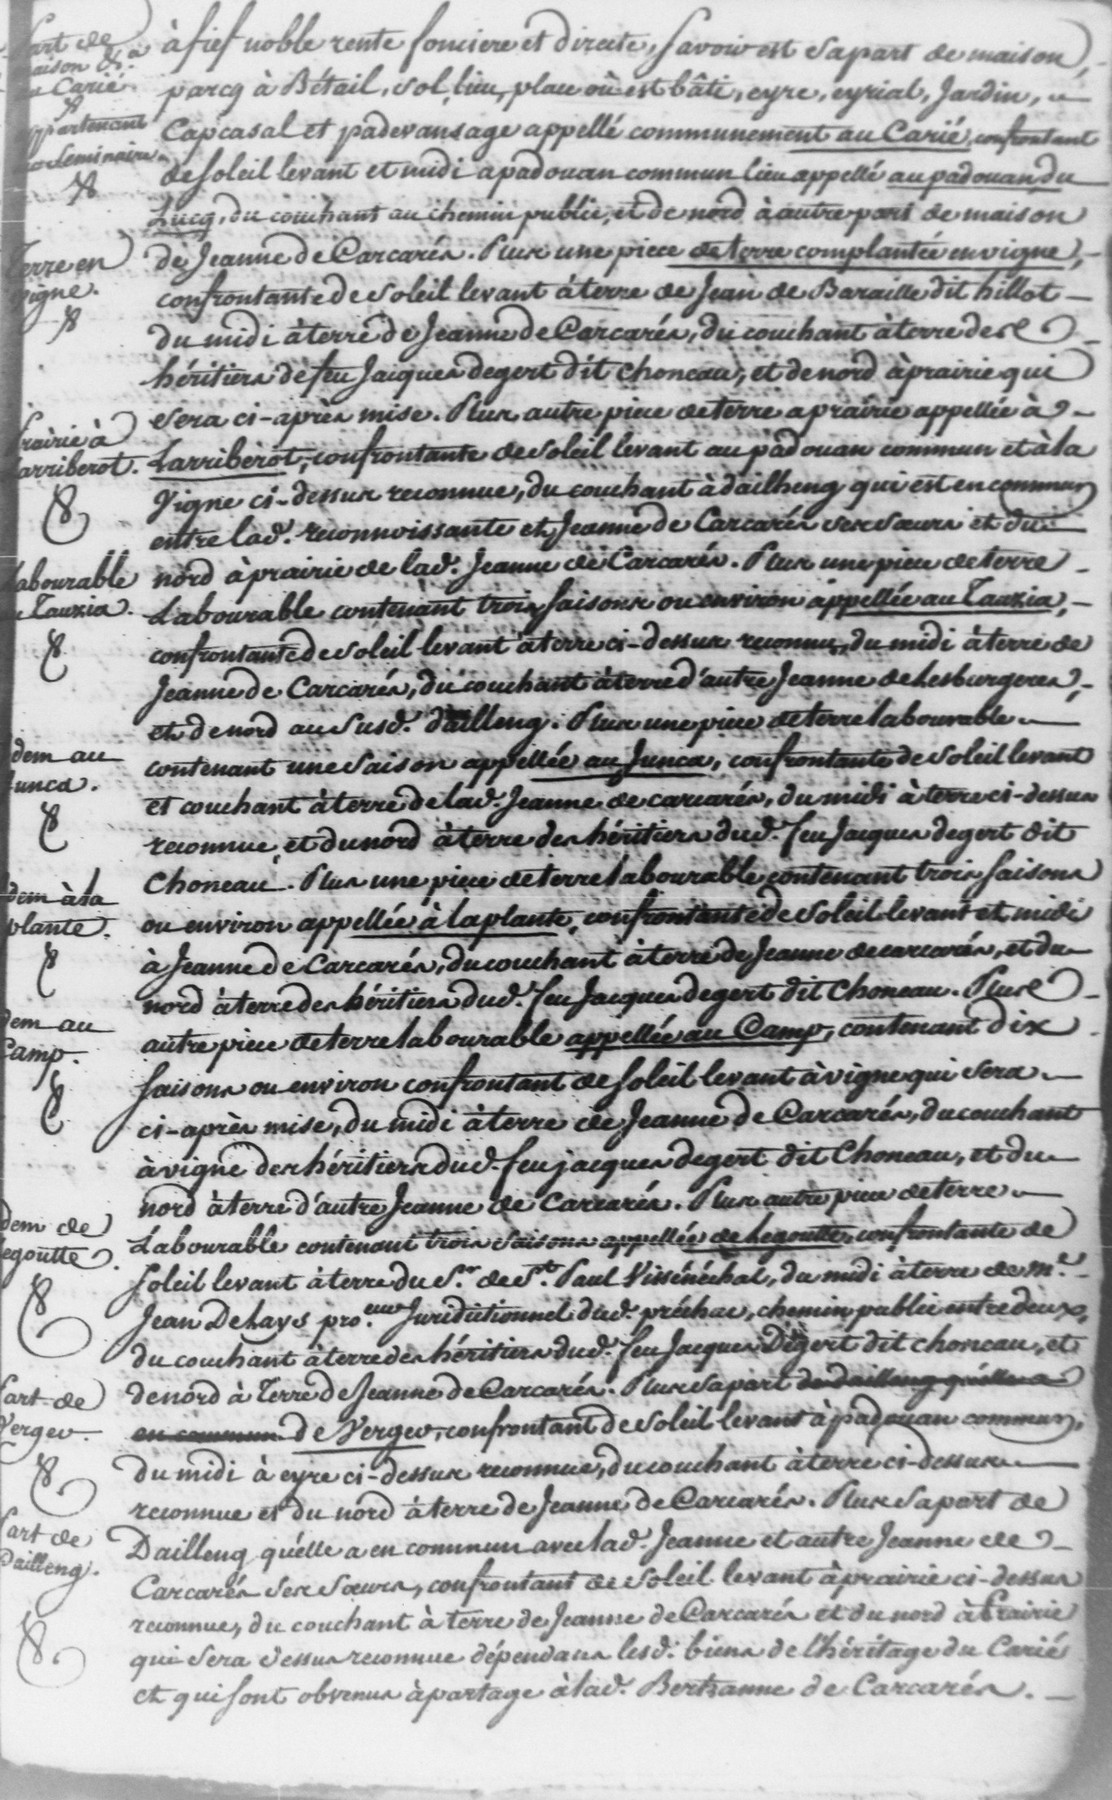 à fief noble rente fonciere et directe, Savoir est sa part de maison,
parcq à Bétail, sol, lieu, place où est bâti, eyre, eyrial, Jardin,
Capcasal et padevansage appellé communement au Carié, confrontant
de Soleil levant et midi a padouan commun lieu appellé au padouan du
Lucq, du couchant au chemin public, et de nord à autre part de maison
de Jeanne de Carcarés. Plus une piece de terre complantée en vigne,
confrontante de Soleil levant à terre de Jean de Baraille dit hillot
du midi à terre de Jeanne de Carcarés, du couchant à terre des
héritiers de feu Jacques degert dit Choneau, et de nord à prairie qui
sera ci-après mise. Plus autre piece de terre a prairie appellée à
Larriberot, confrontante de Soleil levant au padouan commun et à la
Vigne ci-dessus reconnue, du couchant à dailheng qui est en commun
entre lad. reconnoissante et Jeanne de Carcarés ses Sœurs et du
nord à prairie de lad. Jeanne de Carcarés. Plus une piece de terre
Labourable contenant trois saisons ou environ appellée au Tauzia,
confrontante de Soleil levant à terre ci-dessus reconnue, du midi à terre de
Jeanne de Carcarés, du couchant à terre d'autre Jeanne de Lesburgeres,
et de nord au susd. dailleng. Plus une piece de terre labourable
contenant une saison appellée au Junca, confrontante de Soleil levant
et couchant à terre de lad. Jeanne de carcarés, du midi à terre ci-dessus
reconnue, et du nord à terre des héritiers dud. feu Jacques degert dit
Choneau. Plus une piece de terre labourable contenant trois saisons
ou environ appellée à la plante, confrontante de Soleil levant et midi
à Jeanne de Carcarés, du couchant à terre de Jeanne de carcarés, et du
nord à terre des héritiers dud. feu Jacques degert dit Choneau. Plus
autre piece de terre labourable appellée au Camp, contenant dix
saisons ou environ confrontant de Soleil levant à vigne qui sera
ci-après mise, du midi à terre de Jeanne de Carcarés, du couchant
à vigne des héritiers dud. feu jacques degert dit Choneau, et du
nord à terre d'autre Jeanne de Carcarés. Plus autre piece de terre
Labourable contenant trois saisons appellée de Legoutte, confrontante de
Soleil levant à terre du Sr. de St. Paul Vissénéchal, du midi à terre de Me.
Jean Delays pro.eur Juridictionnel dud. préchac, chemin public entre deux,
du couchant à terre des héritiers dud. feu Jacques Degert dit choneau, et
de nord à Terre de Jeanne de Carcarés. Plus sa part de dailleng qu'elle a
en commun de Verger, confrontant de Soleil levant à padouan commun,
du midi à eyre ci-dessus reconnue, du couchant à terre ci-dessus
reconnue et du nord à terre de Jeanne de Carcarés. Plus sa part de
Dailleng qu'elle a en commun avec lad. Jeanne et autre Jeanne de
Carcarés ses Sœurs, confrontant de Soleil levant à prairie ci-dessus
reconnue, du couchant à terre de Jeanne de Carcarés et du nord à Prairie
qui sera dessus reconnue dépendans lesd. biens de l'héritage du Cariés
et qui sont obvenus à partage à lad. Bertranne de Carcarés.
part de
maison &a
au Carié
appartenant
au Seminaire
Terre en
Vigne.
Prairie à
Larriberot.
Labourable
au Tauzia.
Idem au
Junca.
Idem à la
plante.
Idem au
Camp.
Idem de
Legoutte.
Part de
Verger.
Part de
Dailleng.